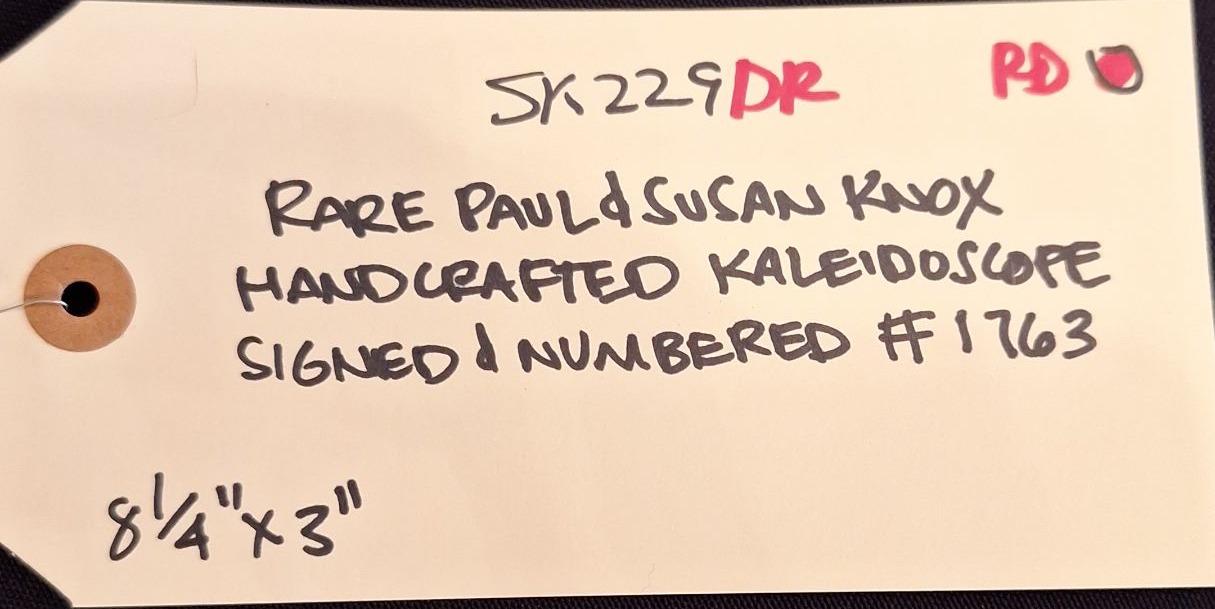 SK229DR RD
RARE PAUL & SUSAN KNOX
HANDCRAFTED KALEIDOSCOPE
SIGNED & NUMBERED #1763
8 1/4" x 3"